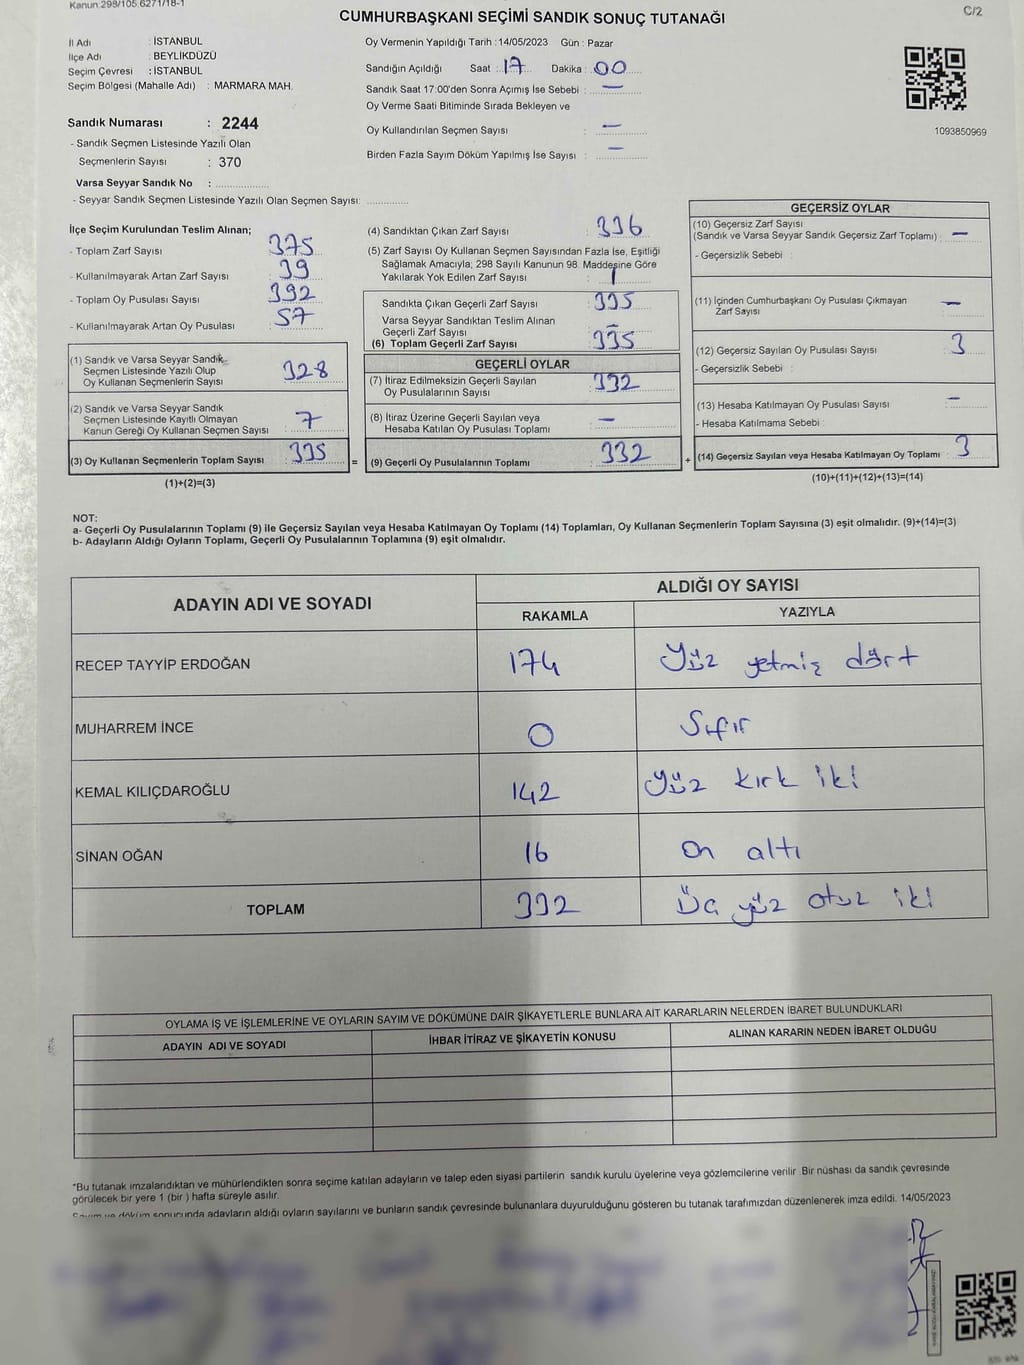 Kanun:298/105,6271/18-1
CUMHURBAŞKANI SEÇİMİ SANDIK SONUÇ TUTANAĞI
C/2
İl Adı : İSTANBUL
İlçe Adı : BEYLİKDÜZÜ
Seçim Çevresi : İSTANBUL
Seçim Bölgesi (Mahalle Adı) : MARMARA MAH.
Sandık Numarası : 2244
- Sandık Seçmen Listesinde Yazılı Olan
Seçmenlerin Sayısı : 370
Varsa Seyyar Sandık No : ....................
- Seyyar Sandık Seçmen Listesinde Yazılı Olan Seçmen Sayısı: ...............
Oy Vermenin Yapıldığı Tarih :14/05/2023 Gün : Pazar
Sandığın Açıldığı Saat : 17 Dakika : 00
Sandık Saat 17:00'den Sonra Açımış İse Sebebi : —
Oy Verme Saati Bitiminde Sırada Bekleyen ve
Oy Kullandırılan Seçmen Sayısı : —
Birden Fazla Sayım Döküm Yapılmış İse Sayısı : —
1093850969
İlçe Seçim Kurulundan Teslim Alınan;
- Toplam Zarf Sayısı 375
- Kullanılmayarak Artan Zarf Sayısı 39
- Toplam Oy Pusulası Sayısı 392
- Kullanılmayarak Artan Oy Pusulası 57
(1) Sandık ve Varsa Seyyar Sandık
Seçmen Listesinde Yazılı Olup
Oy Kullanan Seçmenlerin Sayısı 328
(2) Sandık ve Varsa Seyyar Sandık
Seçmen Listesinde Kayıtlı Olmayan
Kanun Gereği Oy Kullanan Seçmen Sayısı 7
(3) Oy Kullanan Seçmenlerin Toplam Sayısı 335 =
(1)+(2)=(3)
(4) Sandıktan Çıkan Zarf Sayısı : 336
(5) Zarf Sayısı Oy Kullanan Seçmen Sayısından Fazla İse, Eşitliği
Sağlamak Amacıyla, 298 Sayılı Kanunun 98. Maddesine Göre
Yakılarak Yok Edilen Zarf Sayısı : 1
Sandıkta Çıkan Geçerli Zarf Sayısı : 335
Varsa Seyyar Sandıktan Teslim Alınan
Geçerli Zarf Sayısı : —
(6) Toplam Geçerli Zarf Sayısı 335
GEÇERLİ OYLAR
(7) İtiraz Edilmeksizin Geçerli Sayılan
Oy Pusulalarının Sayısı 332
(8) İtiraz Üzerine Geçerli Sayılan veya
Hesaba Katılan Oy Pusulası Toplamı —
(9) Geçerli Oy Pusulalarının Toplamı 332 +
GEÇERSİZ OYLAR
(10) Geçersiz Zarf Sayısı
(Sandık ve Varsa Seyyar Sandık Geçersiz Zarf Toplamı) : —
- Geçersizlik Sebebi :
(11) İçinden Cumhurbaşkanı Oy Pusulası Çıkmayan
Zarf Sayısı : —
(12) Geçersiz Sayılan Oy Pusulası Sayısı : 3
- Geçersizlik Sebebi :
(13) Hesaba Katılmayan Oy Pusulası Sayısı : —
- Hesaba Katılmama Sebebi :
(14) Geçersiz Sayılan veya Hesaba Katılmayan Oy Toplamı : 3
(10)+(11)+(12)+(13)=(14)
NOT:
a- Geçerli Oy Pusulalarının Toplamı (9) ile Geçersiz Sayılan veya Hesaba Katılmayan Oy Toplamı (14) Toplamları, Oy Kullanan Seçmenlerin Toplam Sayısına (3) eşit olmalıdır. (9)+(14)=(3)
b- Adayların Aldığı Oyların Toplamı, Geçerli Oy Pusulalarının Toplamına (9) eşit olmalıdır.
ADAYIN ADI VE SOYADI
ALDIĞI OY SAYISI
RAKAMLA YAZIYLA
RECEP TAYYİP ERDOĞAN 174 Yüz yetmiş dört
MUHARREM İNCE 0 Sıfır
KEMAL KILIÇDAROĞLU 142 Yüz kırk iki
SİNAN OĞAN 16 On altı
TOPLAM 332 Üç yüz otuz iki
OYLAMA İŞ VE İŞLEMLERİNE VE OYLARIN SAYIM VE DÖKÜMÜNE DAİR ŞİKAYETLERLE BUNLARA AİT KARARLARIN NELERDEN İBARET BULUNDUKLARI
ADAYIN ADI VE SOYADI İHBAR İTİRAZ VE ŞİKAYETİN KONUSU ALINAN KARARIN NEDEN İBARET OLDUĞU
*Bu tutanak imzalandıktan ve mühürlendikten sonra seçime katılan adayların ve talep eden siyasi partilerin sandık kurulu üyelerine veya gözlemcilerine verilir. Bir nüshası da sandık çevresinde
görülecek bir yere 1 (bir ) hafta süreyle asılır.
Sayım ve döküm sonucunda adayların aldığı oyların sayılarını ve bunların sandık çevresinde bulunanlara duyurulduğunu gösteren bu tutanak tarafımızdan düzenlenerek imza edildi. 14/05/2023